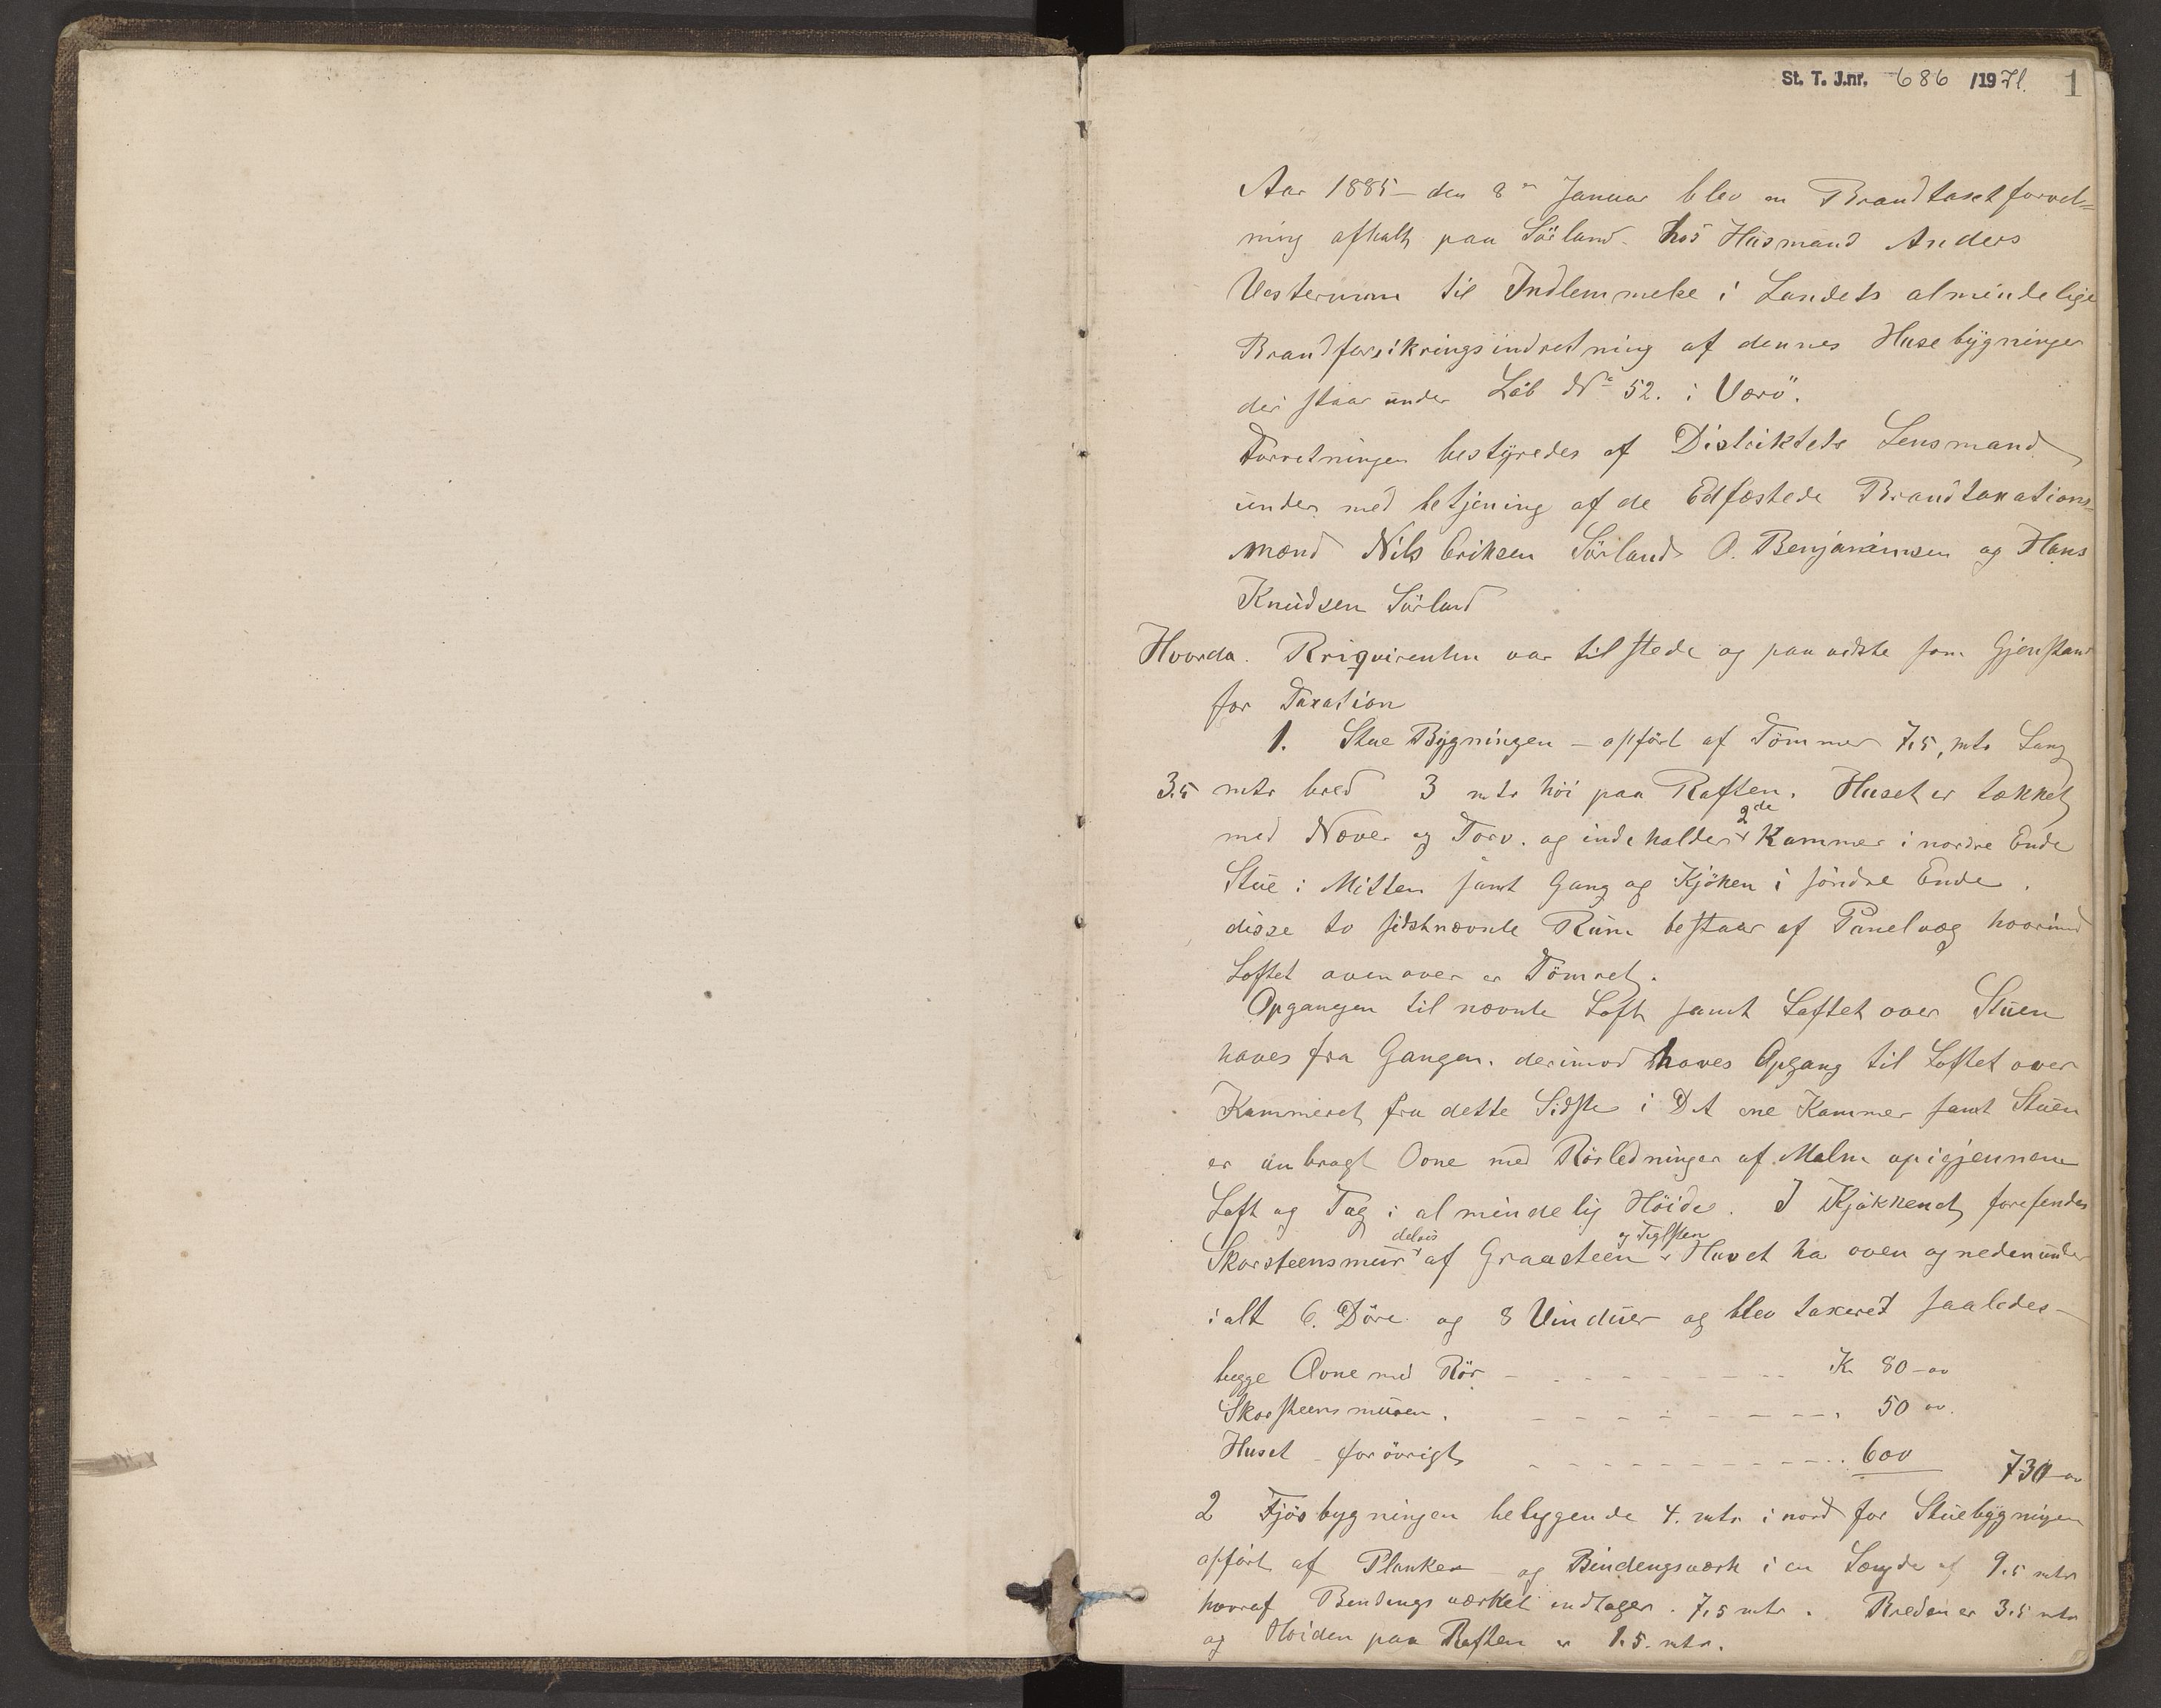 St. T. J.nr. 686 /1971.
1
Aar 1885 – den 8de Januar blev en Brandtaxtforret=
ning afholt paa Sörland. hos Husmand Anders
Vestermann til Indlemmelse i Landets almindelige
Brandforsikringsindretning af dennes Husebygninger
der staar under Löb No 52. i Værö.
Forretningen bestyredes af Distriktets Lensmand
under med betjening af de Edfæstede Brandtaxations=
mænd Nils Eriksen Sörland O. Benjaminsen og Hans
Knudsen Sörland
Hvorda. Rriqvirenten var tilstede og paaviste som Gjenstand
for Taxation
1. Stue Bygningen – opfört af Tömmer 7,5, mtr Lang
3.5 mtr bred 3 mtr höi paa Raften. Huset er tækket
2de
med Næver og Torv. og indeholder Kammer i nordre Ende
Stue i Mitten samt Gang og Kjöken i söndre Ende.
disse to sidstnævnte Rum bestaar af Panelvæg hvorimod
Loftet ovenover er Tömret.
Opgangen til nævnte Loft samt Loftet over Stuen
haves fra Gangen. derimod haves Opgang til Loftet over
Kammeret fra dette Sidste i Det ene Kammer samt Stuen
er anbragt Ovne med Rörledninger af Malm opigjennem
Loft og Tag i almindelig Höide. I Kjökkenet forefindes
delvis og Teglsten
Skorsteensmur af Graasteen Huset ha oven og nedenunder
ialt 6. Döre og 8 Vinduer og blev taxeret saaledes –
begge Ovne med Rör – – – – – – – – Kr 80 – oo
Skorsteensmuren. – – – – – – – – 50 oo.
Huset foröwrigt – – – – – – – – – 600 730 – oo
2 Fjösbygningen beliggende 4. mtr i nord for Stuebygningen
opfört af Planker – og Bindengsværk i en Længde af 9.5 mtr
hvoraf Bindingsværket indtager. 7,5 mtr. Breden er 3.5 mtr
og Höiden paa Raften er 1.5. mtr.